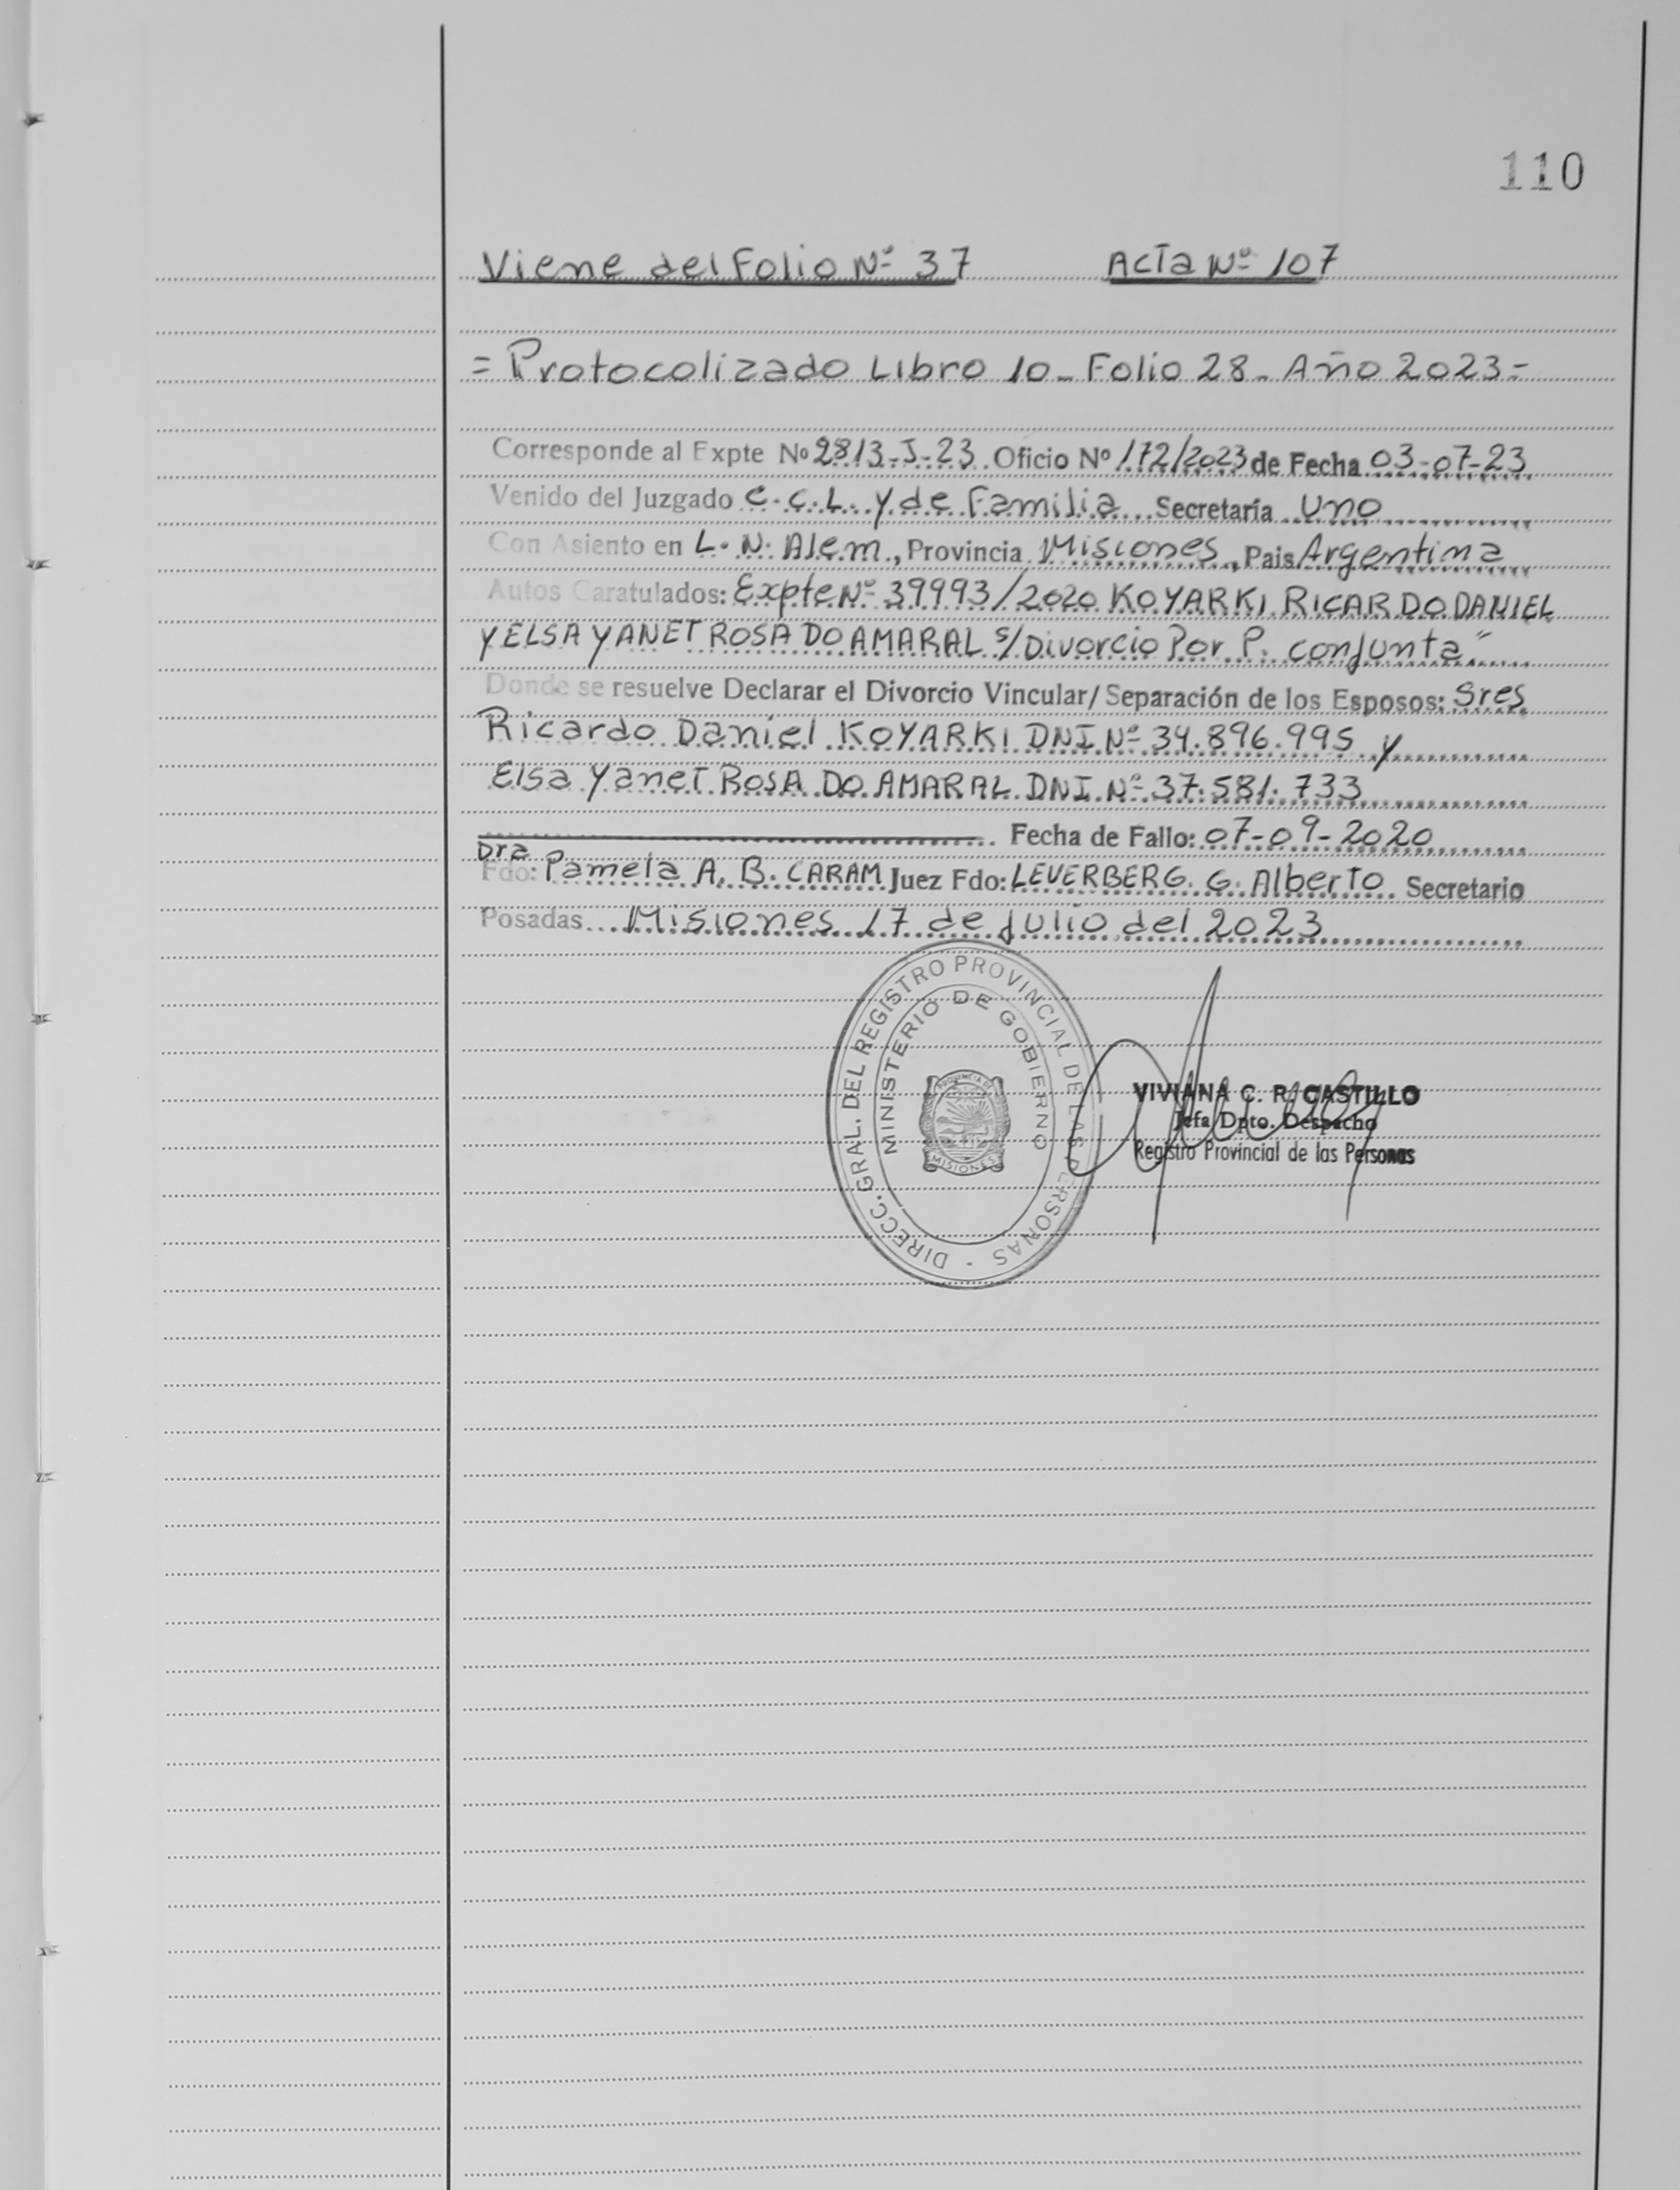 110
Viene del Folio Nº 37 Acta Nº 107
= Protocolizado Libro 10_ Folio 28_ Año 2023=
Corresponde al Expte Nº 2813-J-23. Oficio Nº 172/2023 de Fecha 03-07-23
Venido del Juzgado C.C.L. y de Familia Secretaría Uno
Con Asiento en L.N. Alem., Provincia Misiones, Pais Argentina
Autos Caratulados: Expte Nº 39993/2020 KOYARKI RICARDO DANIEL
Y ELSA YANET ROSA DO AMARAL s/Divorcio Por P. conjunta"
Donde se resuelve Declarar el Divorcio Vincular/Separación de los Esposos: Sres
Ricardo Daniel KOYARKI DNI Nº 34.896.995 y
Elsa Yanet ROSA DO AMARAL DNI Nº 37.581.733
Fecha de Fallo: 07-09-2020
Dra
Fdo: Pamela A. B. CARAM Juez Fdo: LEVERBERG. G. Alberto Secretario
Posadas Misiones 17 de julio del 2023
DIRECC. GRAL. DEL REGISTRO PROVINCIAL DE LAS PERSONAS -
MINISTERIO DE GOBIERNO
PROVINCIA DE
MISIONES
VIVIANA C. R. CASTILLO
Jefa Dpto. Despacho
Registro Provincial de las Personas